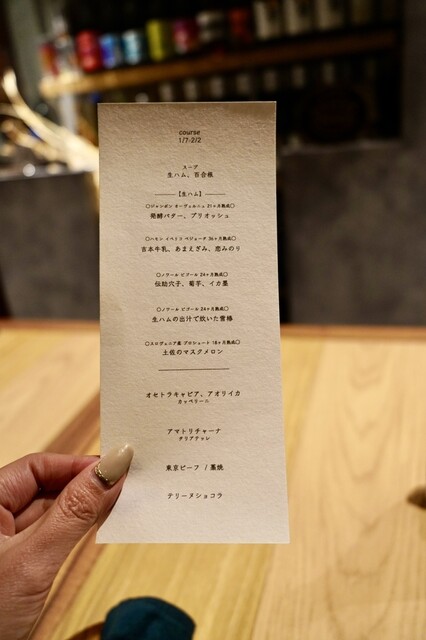 course
1/7-2/2
スープ
生ハム、百合根
【生ハム】
○ジャンボン オーヴェルニュ 21ヶ月熟成○
発酵バター、ブリオッシュ
○ハモン イベリコ ベジョータ 36ヶ月熟成○
吉本牛乳、あまえぎみ、恋みのり
○ノワール ビゴール 24ヶ月熟成○
伝助穴子、菊芋、イカ墨
○ノワール ビゴール 24ヶ月熟成○
生ハムの出汁で炊いた雲椿
○スロヴェニア産 プロシュート 18ヶ月熟成○
土佐のマスクメロン
オセトラキャビア、アオリイカ
カッペリーニ
アマトリチャーナ
タリアテッレ
東京ビーフ / 藁焼
テリーヌショコラ